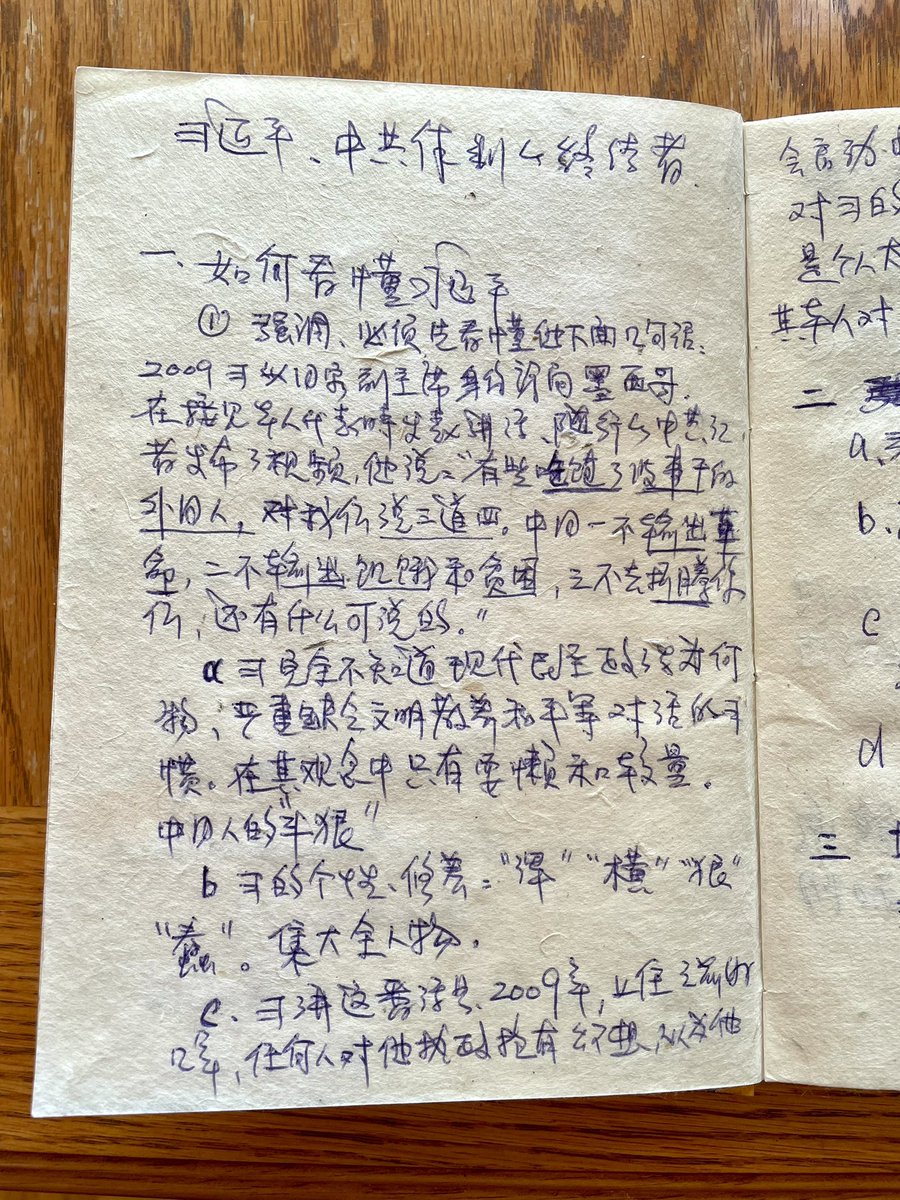 习近平、中共体制的终结者
一、如何看懂习近平
① 强调、必须先看懂他下面几句话：
2009习以国家副主席身份访问墨西哥。
在接见华人代表时发表讲话、随行的中共记
者发布了视频，他说："有些吃饱了没事干的
外国人，对我们说三道四。中国一不输出革
命，二不输出饥饿和贫困，三不去折腾你
们，还有什么可说的。"
a 习完全不知道现代民主政治为何
物，严重缺乏文明教养和平等对话的习
惯。在其观念中只有耍懒和较量。
中国人的"斗狠"
b 习的个性、修养："浑""横""狠"
"蠢"。集大全人物。
c、习讲这番话是、2009年，上任之前的
年，任何人对他执政抱有幻想，以为他
会启动
对习的
是个人
其本人对
二
a、
b、
c
d
三